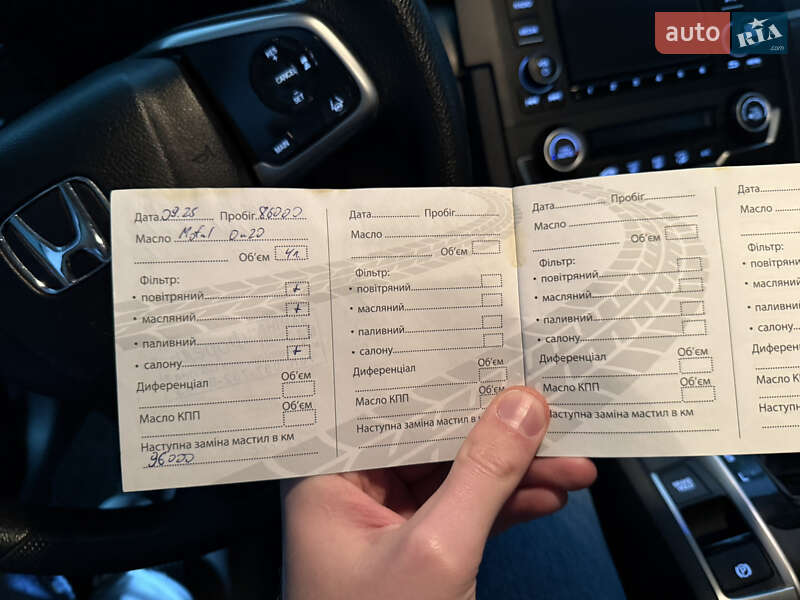 auto RIA .com
RES
CANCEL
SET
MAIN
Дата 09.25 Пробіг 86000
Масло Motul 0w20
Об'єм 4л
Фільтр:
• повітряний +
• масляний +
• паливний
• салону +
Диференціал Об'єм
Масло КПП Об'єм
Наступна заміна мастил в км
96000
Дата Пробіг
Масло
Об'єм
Фільтр:
• повітряний
• масляний
• паливний
• салону
Диференціал Об'єм
Масло КПП Об'єм
Наступна заміна мастил в км
Дата Пробіг
Масло
Об'єм
Фільтр:
• повітряний
• масляний
• паливний
• салону
Диференціал Об'єм
Масло КПП Об'єм
Наступна заміна мастил в км
Дата
Масло
Фільтр:
• повітряний
• масляний
• паливний
• салону
Диференціал
Масло КПП
Наступна